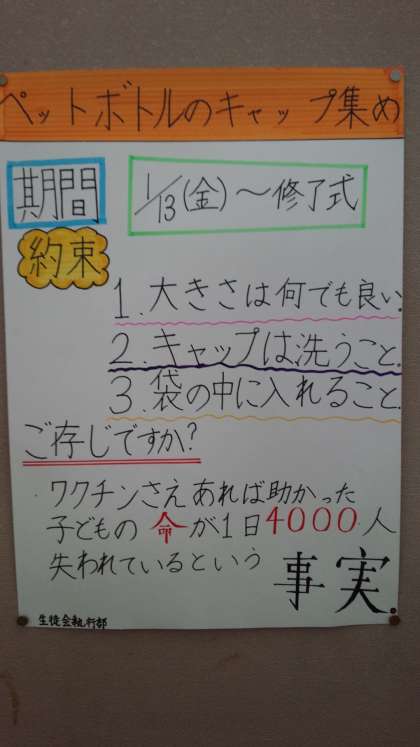 ペットボトルのキャップ集め
期間 1/13(金)～修了式
約束
1.大きさは何でも良い.
2.キャップは洗うこと.
3.袋の中に入れること.
ご存じですか?
ワクチンさえあれば助かった
子どもの命が1日4000人
失われているという
事実.
生徒会執行部